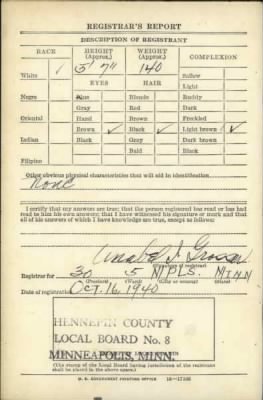 REGISTRAR'S REPORT
DESCRIPTION OF REGISTRANT
RACE HEIGHT (Approx.) WEIGHT (Approx.) COMPLEXION
White ✓ 5' 7" 140 Sallow
EYES HAIR Light
Negro Blue Blonde Ruddy
Gray Red Dark
Oriental Hazel Brown Freckled
Brown ✓ Black ✓ Light brown ✓
Indian Black Gray Dark brown
Bald Black
Filipino
Other obvious physical characteristics that will aid in identification
None
I certify that my answers are true; that the person registered has read or has had
read to him his own answers; that I have witnessed his signature or mark and that
all of his answers of which I have knowledge are true, except as follows:
(Signature of registrar)
Registrar for 30 5 MPLS. MINN
(Precinct) (Ward) (City or county) (State)
Date of registration Oct. 16, 1940
HENNEPIN COUNTY
LOCAL BOARD No. 8
MINNEAPOLIS, MINN.
(The stamp of the Local Board having jurisdiction of the registrant
shall be placed in the above space.)
U. S. GOVERNMENT PRINTING OFFICE